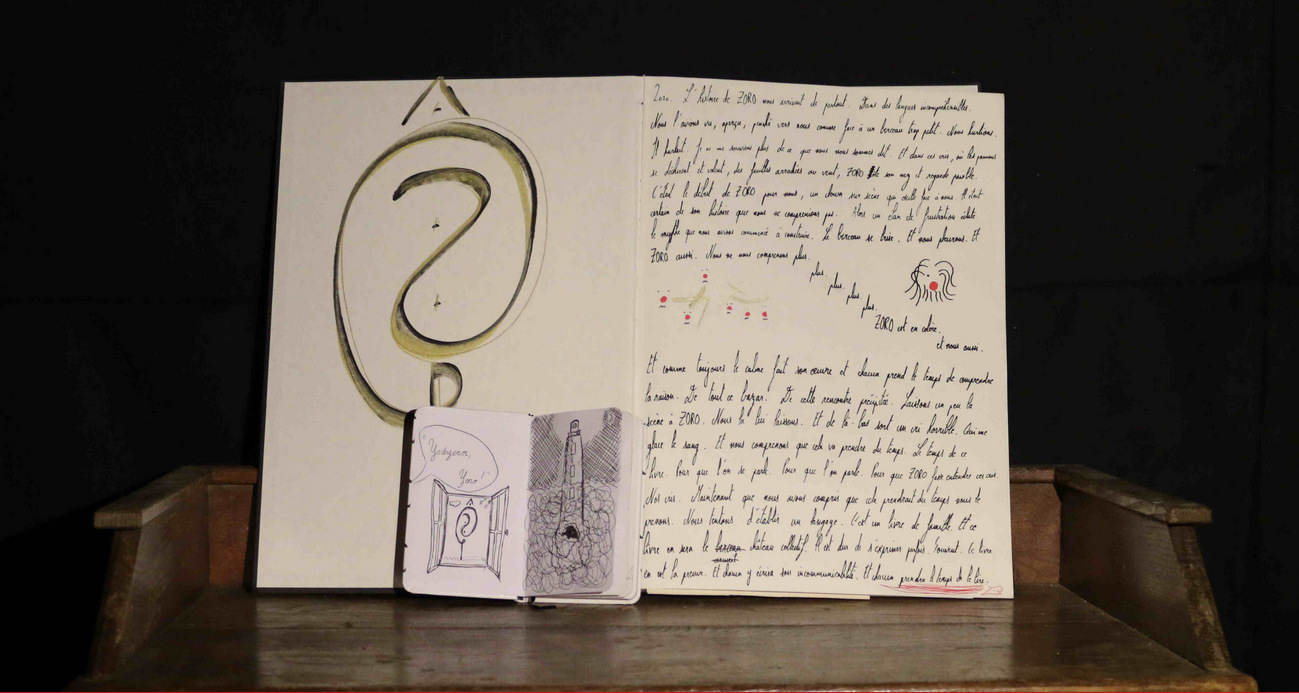 Yadyoroi,
Yoro !
Zoro. L'histoire de ZORO nous arrivent de partout. Dans des langues incompréhensibles.
Nous l'avions vu, aperçu, penché vers nous comme face à un berceau trop petit. Nous hurlions.
Il hurlait. Je ne me souviens plus de ce que nous nous sommes dit. Et dans ces cris, où les poumons
se déchirent et volent, des feuilles arrachées au vent, ZORO ôte son nez et regarde paisible.
C'était le début de ZORO pour nous, un clown sur scène qui était face à nous. Il était
certain de son histoire que nous ne comprenions pas. Alors un élan de frustration éclate
le mythe que nous avions commencé à construire. Le berceau se brise. Et nous pleurons. Et
ZORO aussi. Nous ne nous comprenons plus.
plus.
plus.
plus.
plus.
ZORO est en colère.
et nous aussi.
Et comme toujours le calme fait son œuvre et chacun prend le temps de comprendre
la raison. De tout ce bazar. De cette rencontre précipitée. Laissons un peu la
scène à ZORO. Nous la lui laissons. Et de là-bas sort un cri horrible. Qui me
glace le sang. Et nous comprenons que cela va prendre du temps. Le temps de ce
livre. Pour que l'on se parle. Pour que l'on parle. Pour que ZORO fasse entendre ces cris.
Nos cris. Maintenant que nous avons compris que cela prendrait du temps nous le
prenons. Nous tentons d'établir un langage. C'est un livre de famille. Et ce
livre en sera le château collectif. Il est dur de s'exprimer parfois. Souvent. Ce livre
en est la preuve. Et chacun y écrira son incommunicabilité. Et chacun prendra le temps de le lire.